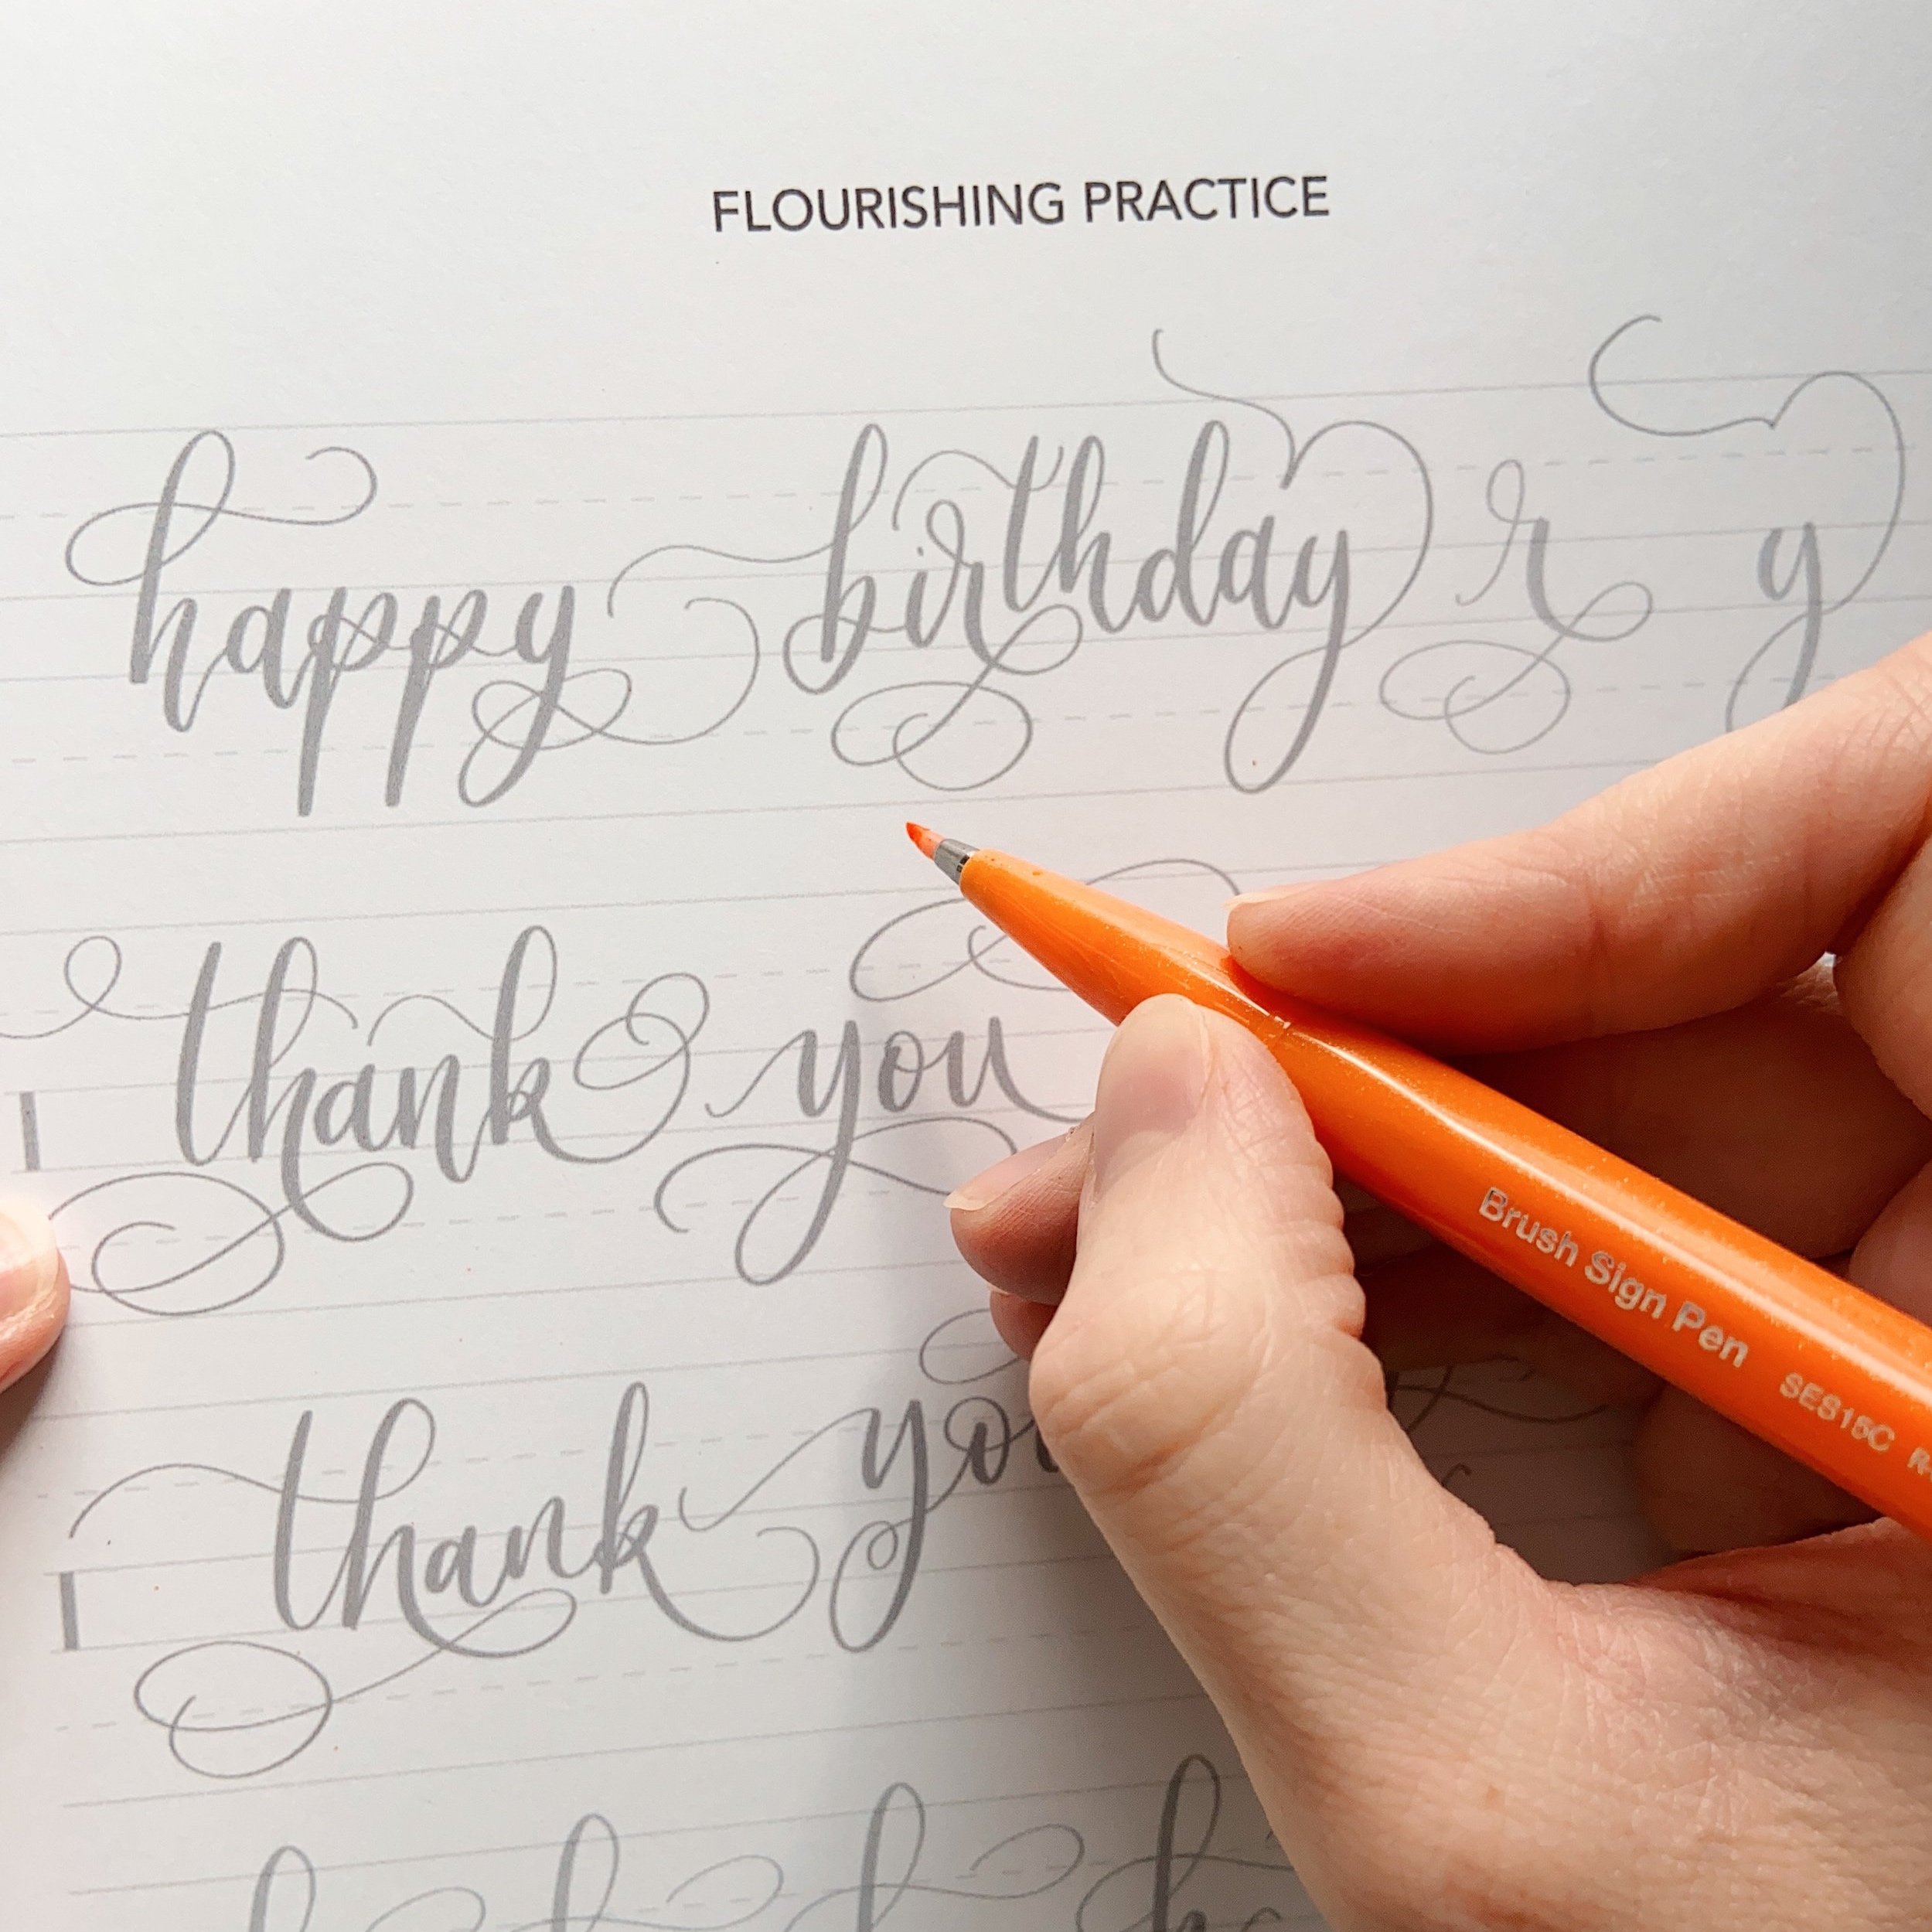 FLOURISHING PRACTICE
happy birthday r y
thank you
thank
Brush Sign Pen SES15C